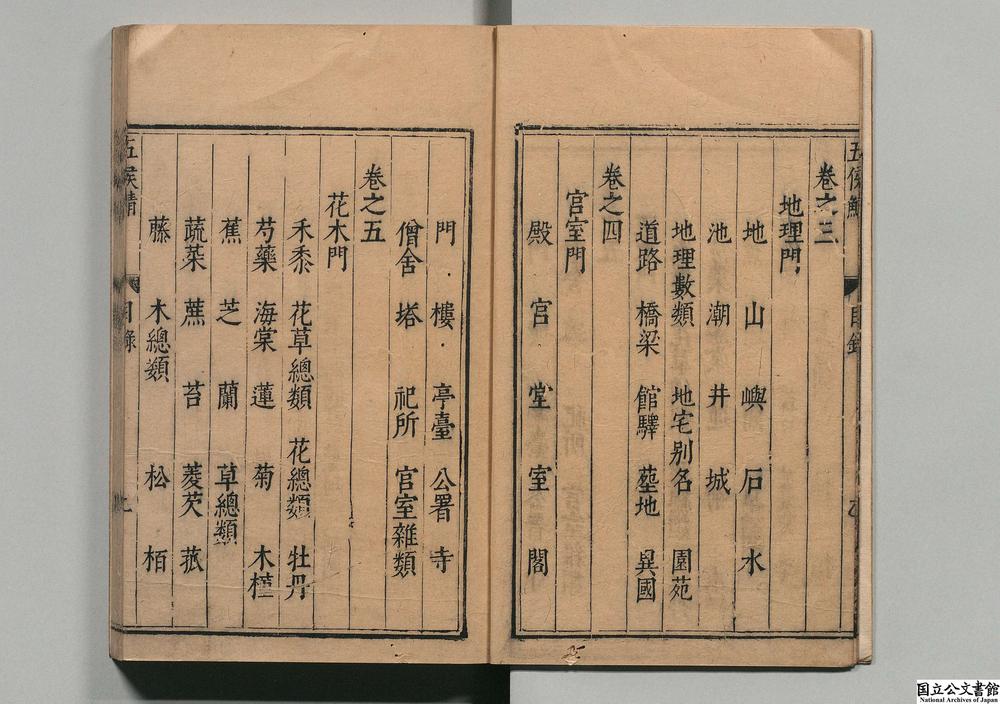 五侯鯖
目録
卷之三
地理門
地 山 嶼 石 水
池 潮 井 城
地理數類 地宅别名 園苑
道路 橋梁 館驛 墓地 異國
卷之四
宮室門
殿 宮 堂 室 閣
門 樓 亭臺 公署 寺
僧舍 塔 祀所 宮室雜類
卷之五
花木門
禾黍 花草總類 花總類 牡丹
芍藥 海棠 蓮 菊 木槿
蕉 芝 蘭 草總類
蔬菜 蕉 苔 菱芡 菰
藤 木總類 松 栢
五侯鯖
目録
国立公文書館
National Archives of Japan